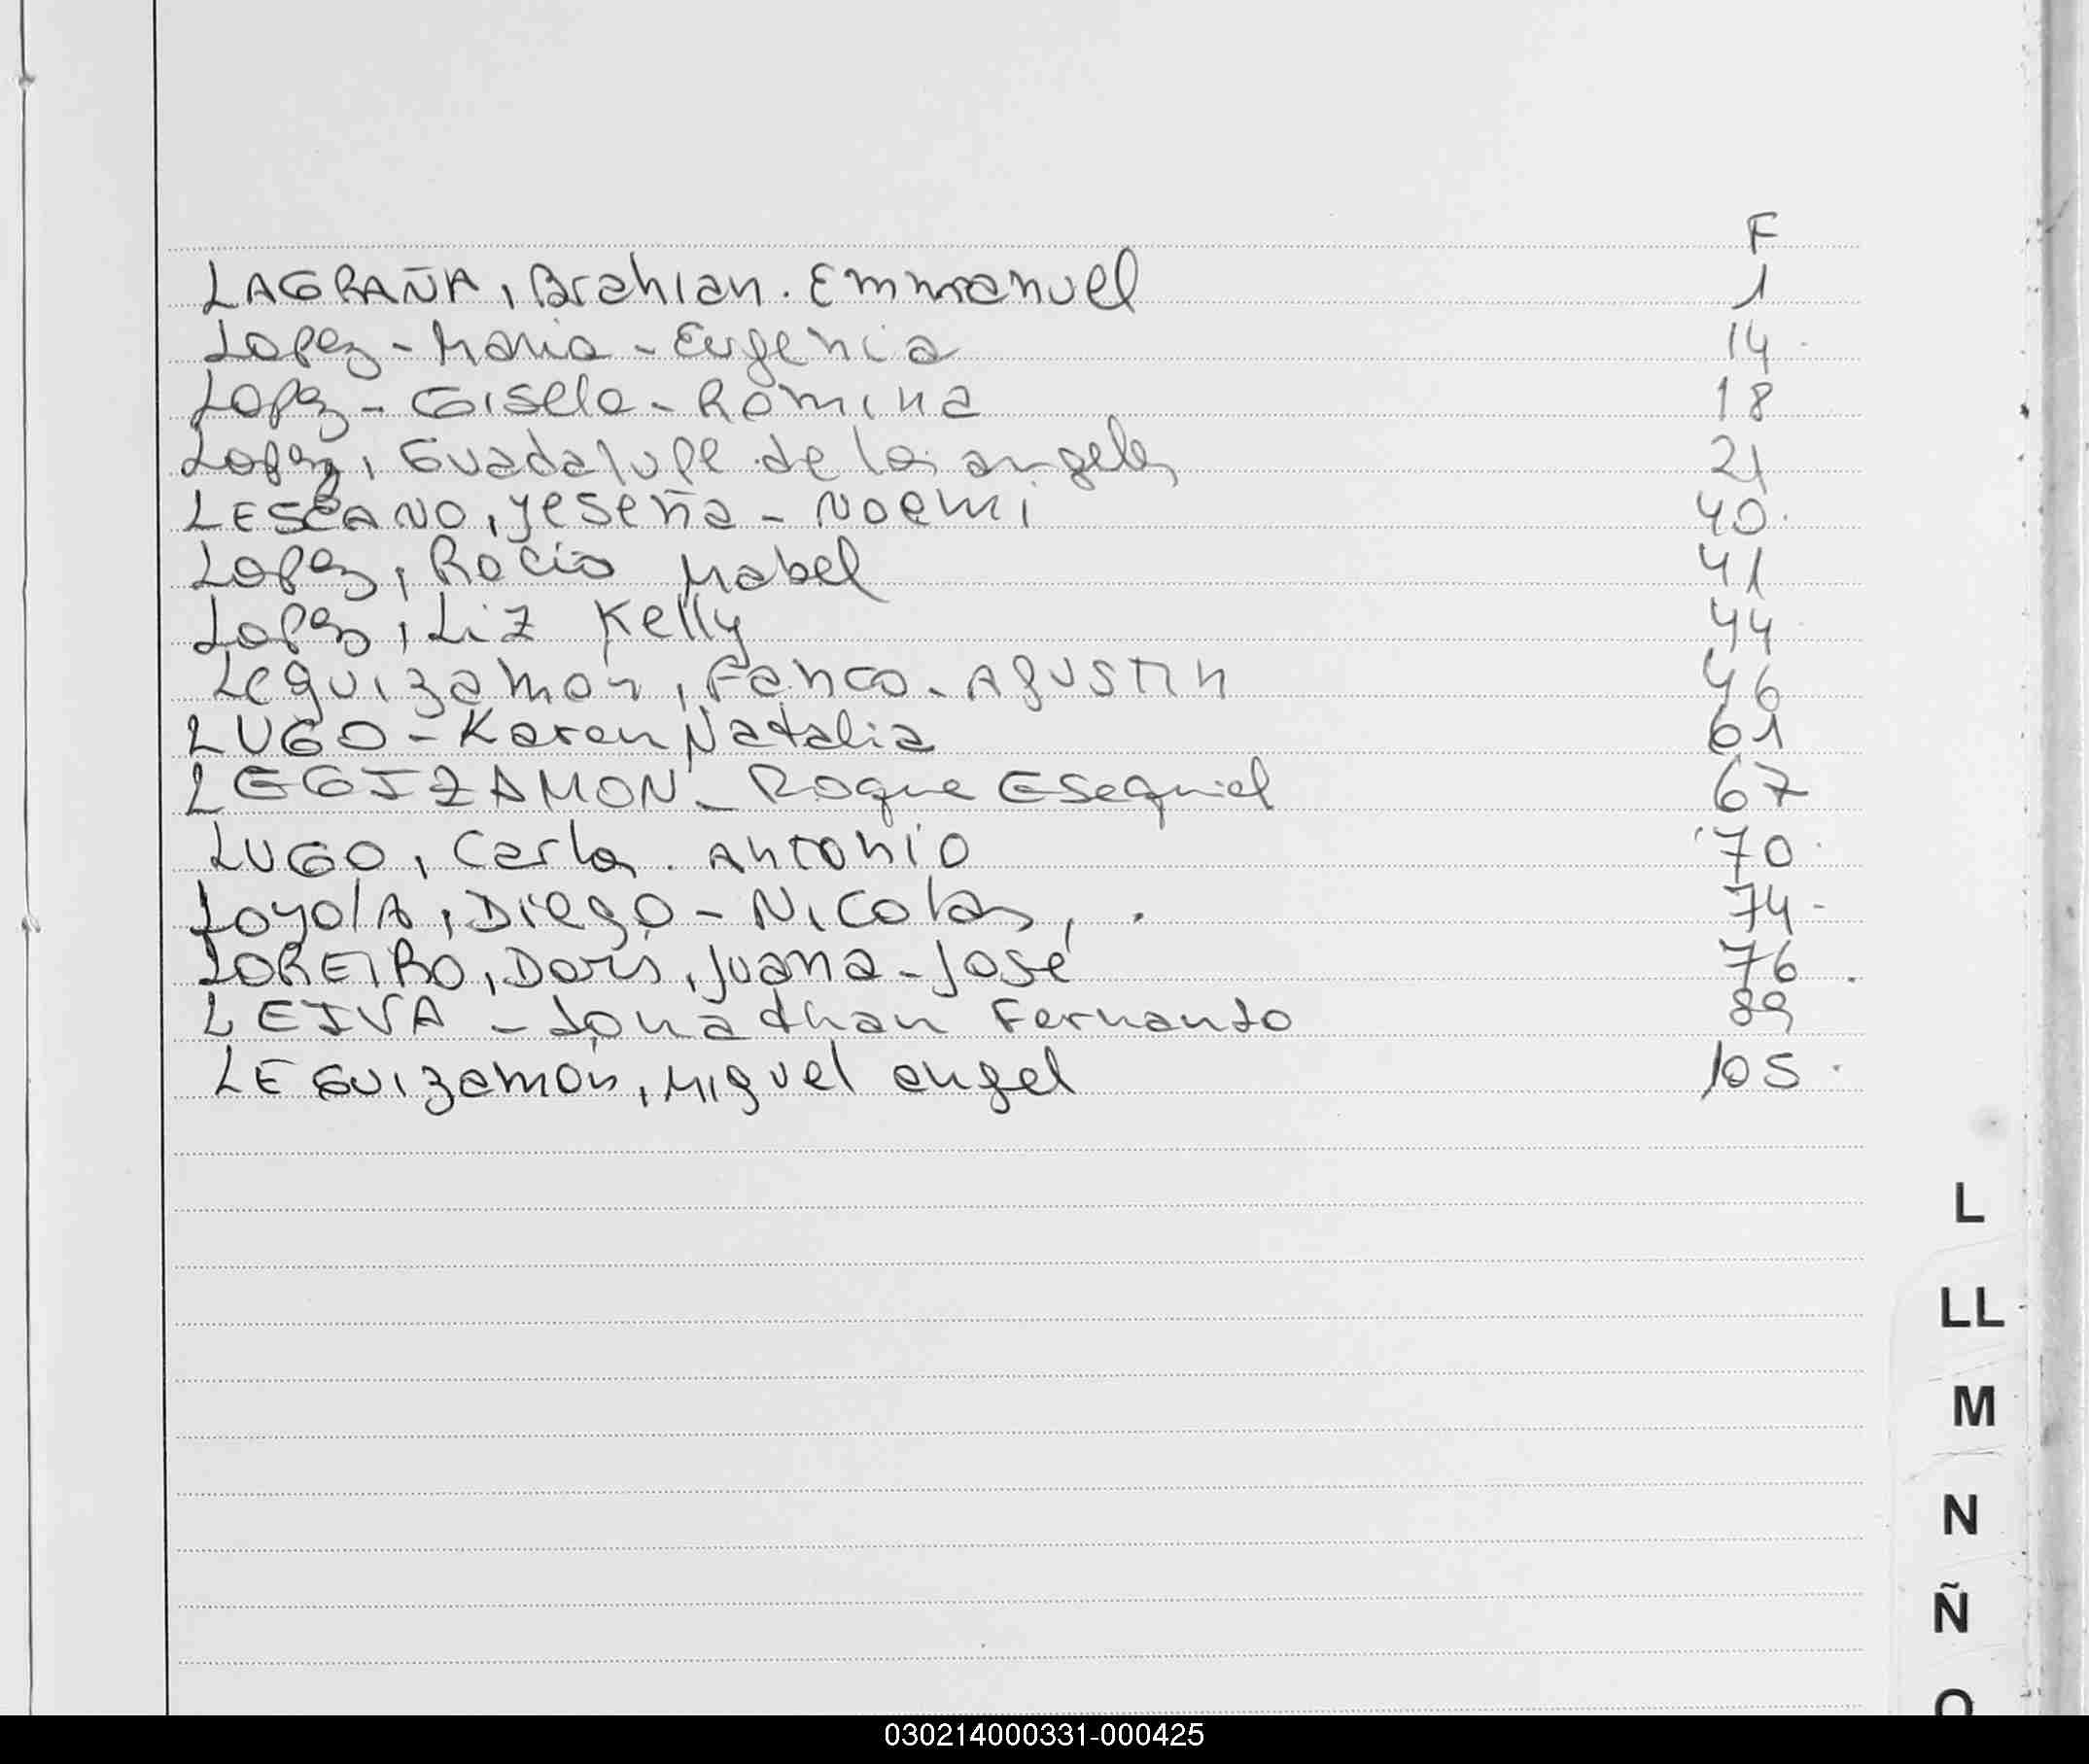 F
LAGRAÑA, Brahian. Emmanuel 1
Lopez - Maria - Eugenia 14
Lopez - Gisela - Romina 18
Lopez, Guadalupe de los angeles 21
LESCANO, Yeseña - Noemi 40
Lopez, Rocio Mabel 41
Lopez, Liz Kelly 44
Leguizamón, Fanco - Agustin 46
LUGO - Karen Natalia 61
LEGIZAMON - Roque Esequiel 67
LUGO, Carlos. Antonio 70
Loyola, Diego - Nicolas, 74
LOREIRO, Doris, Juana - José 76
LEIVA - Jonathan Fernando 89
LEGuizamón, Miguel angel 105
L
LL
M
N
Ñ
O
030214000331-000425